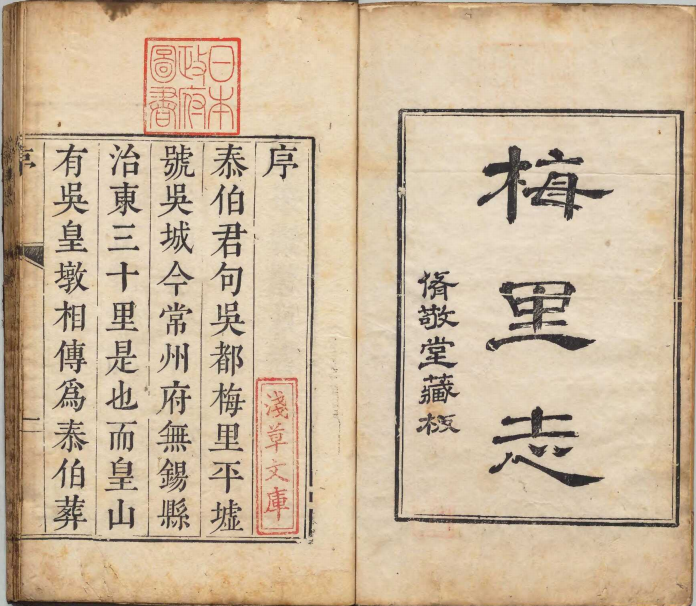 梅里志
脩敬堂藏板
日本
政府
圖書
序
泰伯君句吳都梅里平墟
號吳城今常州府無錫縣
治東三十里是也而皇山
有吳皇墩相傳爲泰伯葬
淺草文庫
序
二